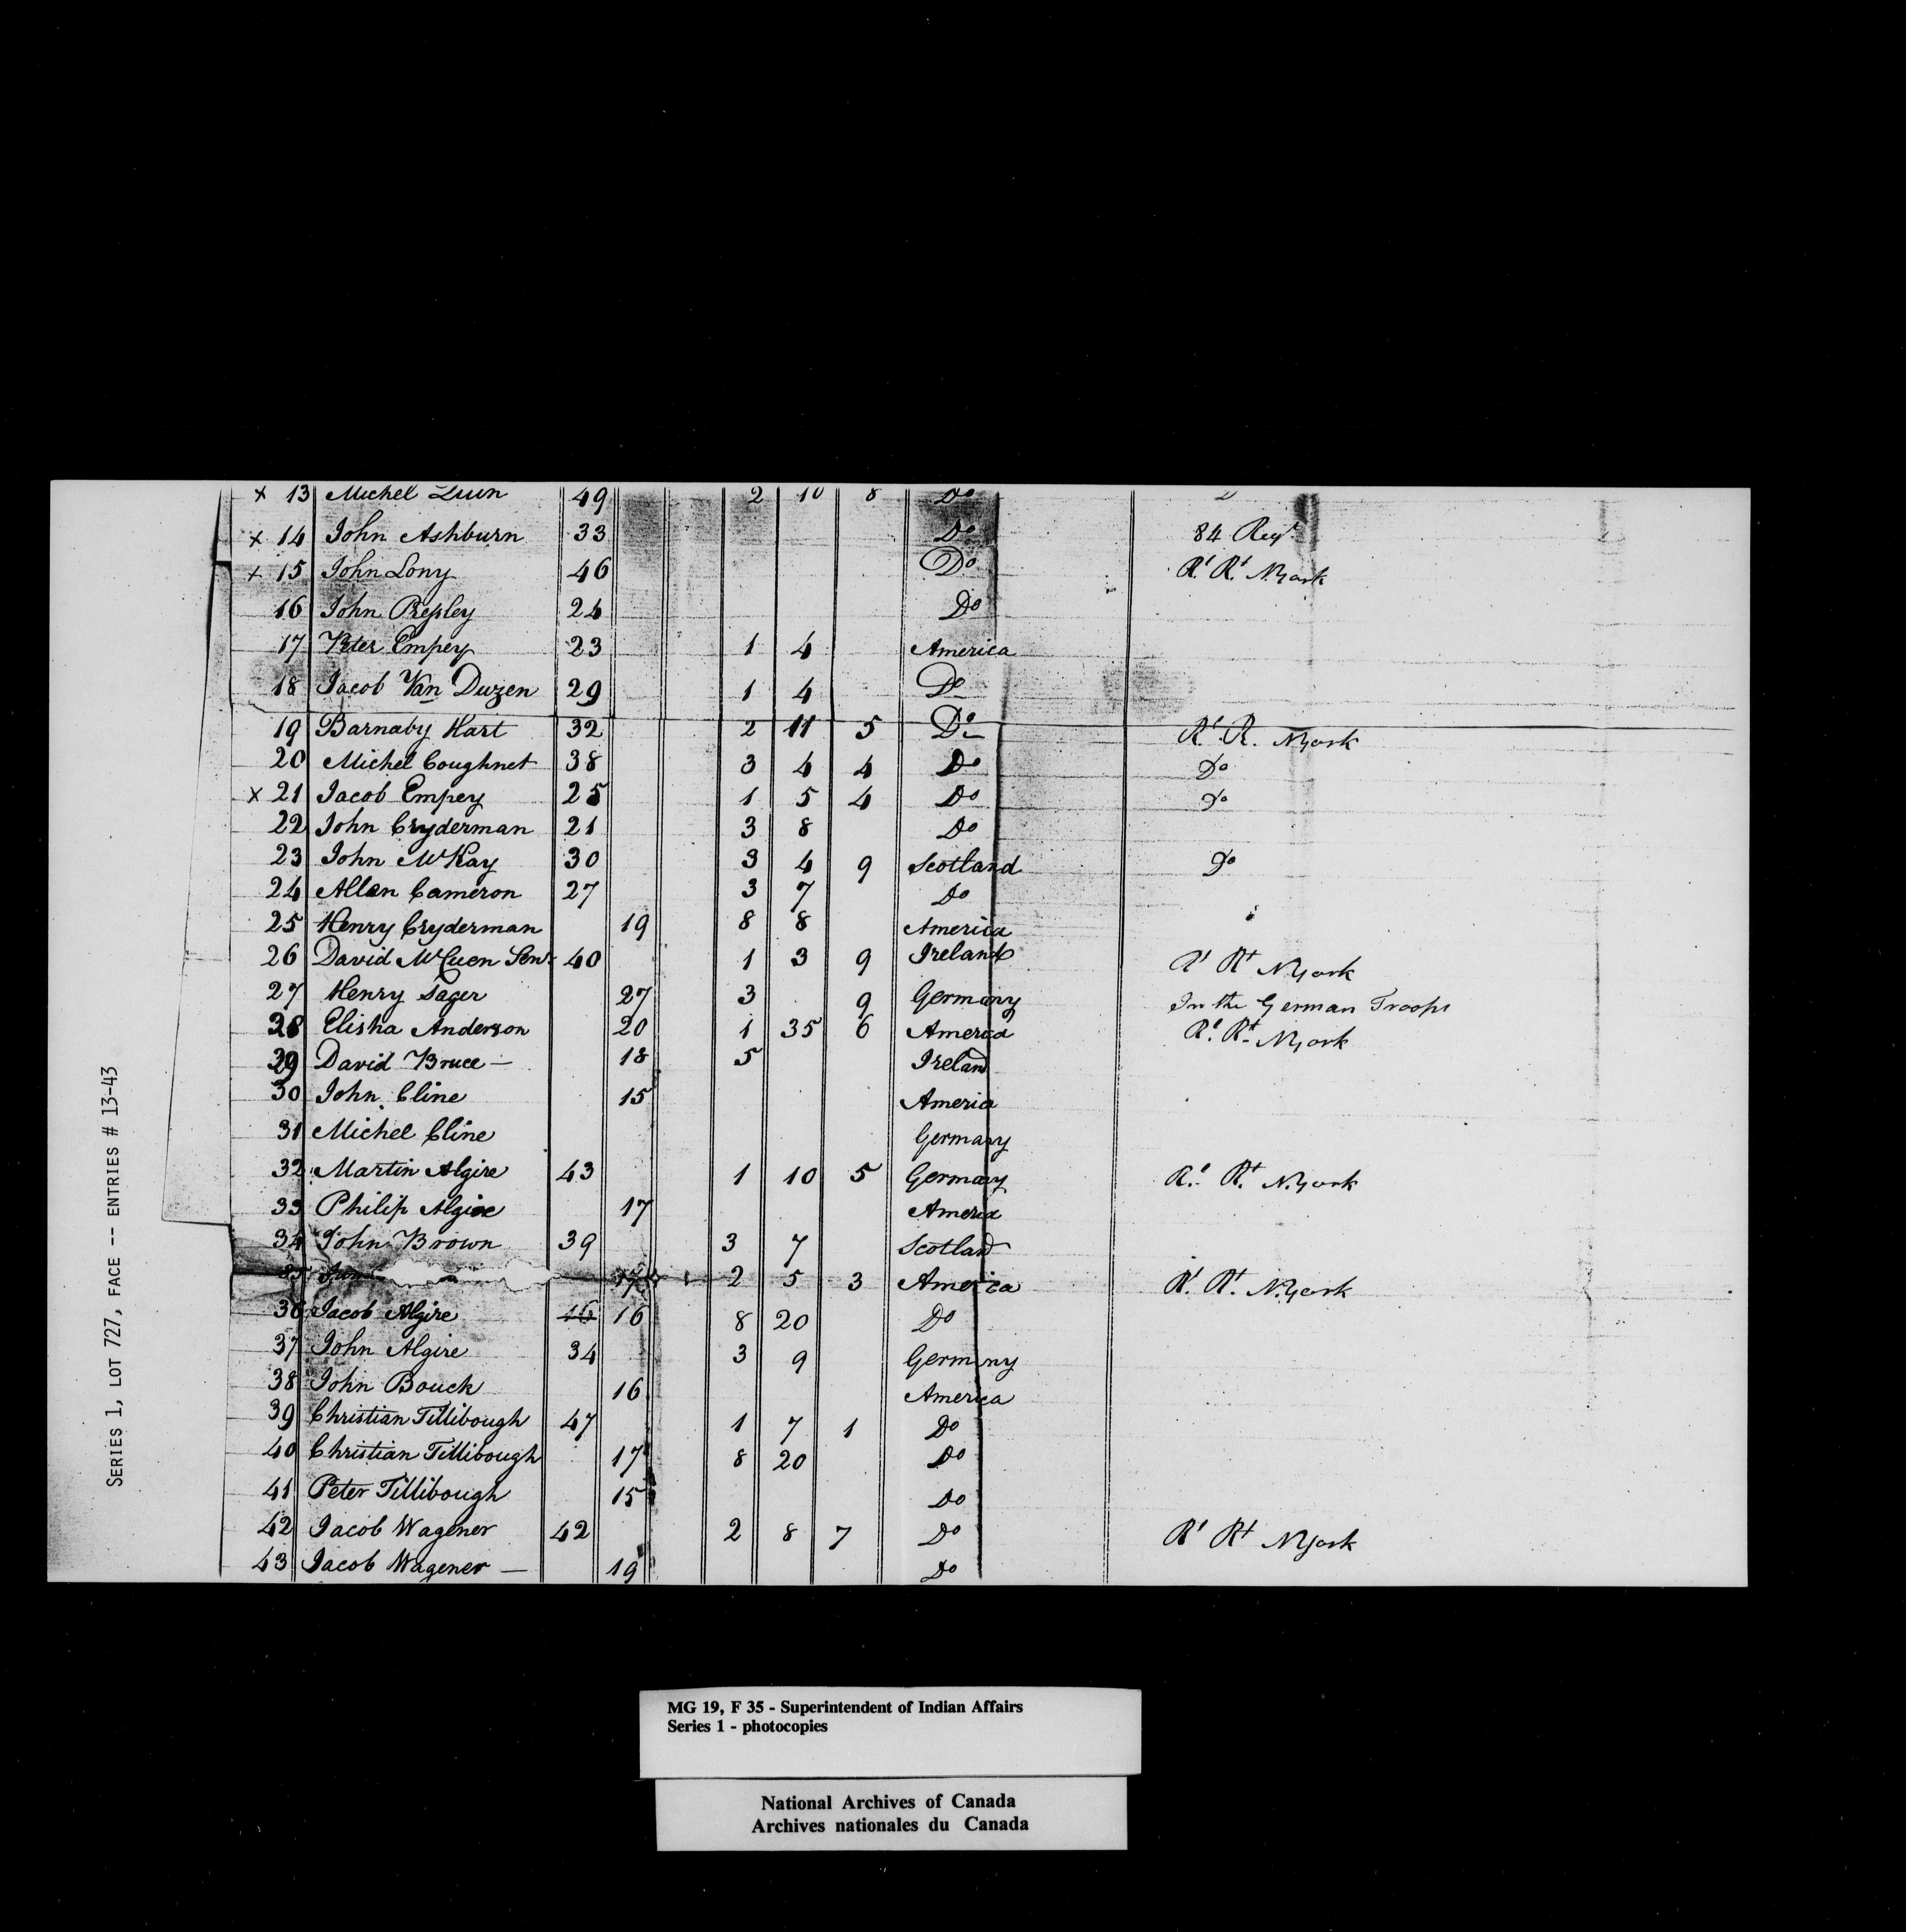 SERIES 1, LOT 727, FACE -- ENTRIES # 13-43
x 13 Michel 49 2 10 8 Do
x 14 John Ashburn 33 Do 84 Regt.
x 15 John Lony 46 Do Rl. Rt. NYork
16 John Prepley 24 Do
17 Peter Empey 23 1 4 America
18 Jacob Van Duzen 29 1 4 Do
19 Barnaby Hart 32 2 11 5 Do Rl. R. NYork
20 Michel Coughnet 38 3 4 4 Do Do
x 21 Jacob Empey 25 1 5 4 Do Do
22 John Cryderman 21 3 8 Do
23 John McKay 30 3 4 9 Scotland Do
24 Allan Cameron 27 3 7 Do
25 Henry Cryderman 19 8 8 America
26 David McCuen Senr. 40 1 3 9 Ireland Rl Rt NYork
27 Henry Sager 27 3 9 Germany In the German Troops
28 Elisha Anderson 20 1 35 6 America Rl. Rt. NYork
29 David Bruce — 18 5 Ireland
30 John Cline 15 America
31 Michel Cline Germany
32 Martin Algire 43 1 10 5 Germany Rl. Rt. N.York
33 Philip Algire 17 America
34 John Brown 39 3 7 Scotland
35 2 5 3 America Rl. Rt. N.York
36 Jacob Algire 16 16 8 20 Do
37 John Algire 34 3 9 Germany
38 John Bouck 16 America
39 Christian Tillibough 47 1 7 1 Do
40 Christian Tillibough 17 8 20 Do
41 Peter Tillibough 15 Do
42 Jacob Wagener 42 2 8 7 Do Rl Rt NYork
43 Jacob Wagener — 19 Do
MG 19, F 35 - Superintendent of Indian Affairs
Series 1 - photocopies
National Archives of Canada
Archives nationales du Canada